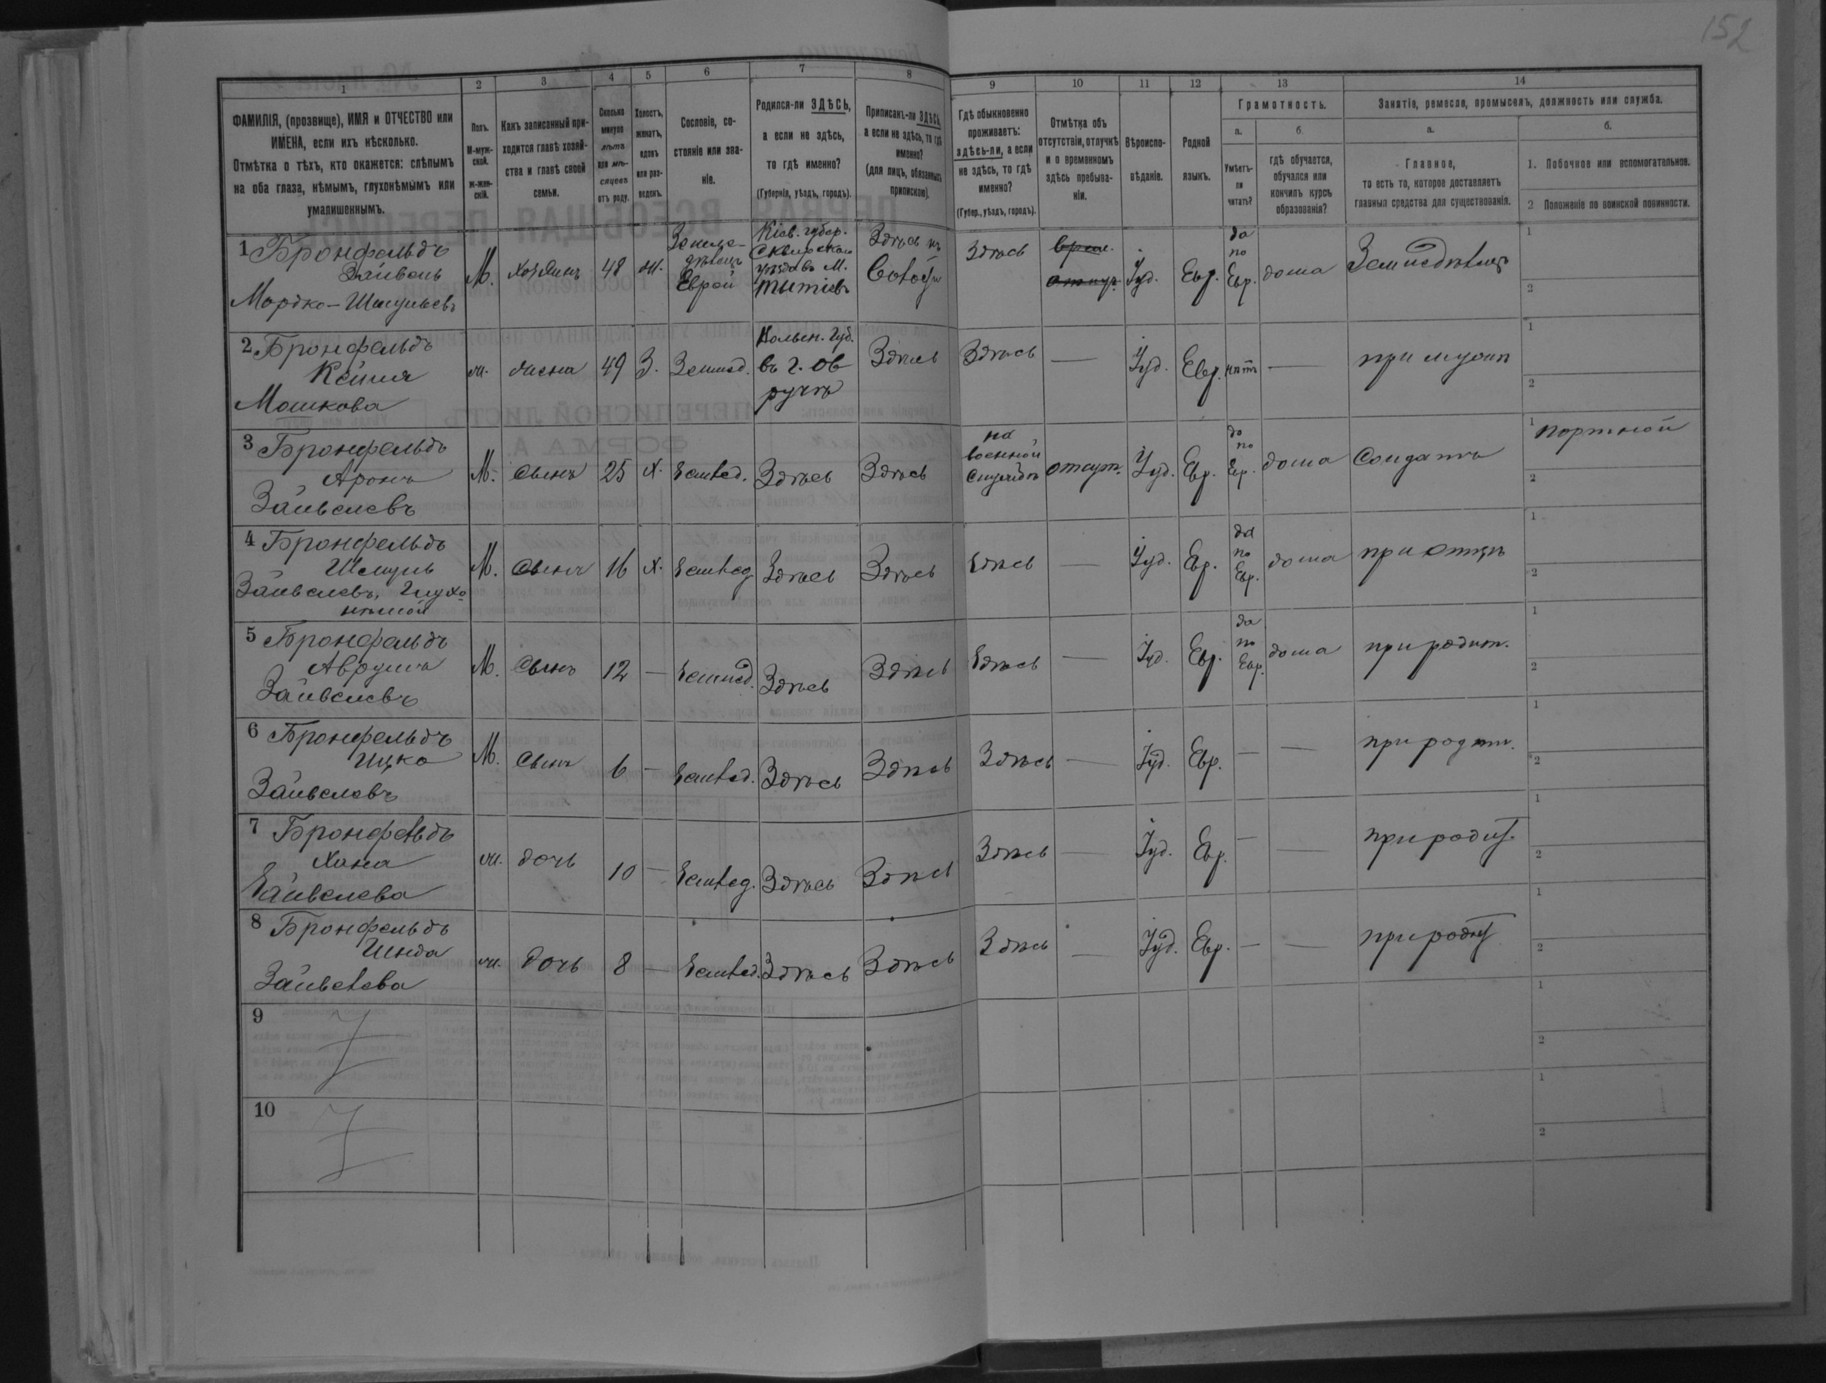 152
1
2
3
4
5
6
7
8
9
10
11
12
13
14
ФАМИЛІЯ, (прозвище), ИМЯ и ОТЧЕСТВО или
ИМЕНА, если ихъ нѣсколько.
Отмѣтка о тѣхъ, кто окажется: слѣпымъ
на оба глаза, нѣмымъ, глухонѣмымъ или
умалишеннымъ.
Полъ.
М-муж-
ской.
ж-жен-
скій.
Какъ записанный при-
ходится главѣ хозяй-
ства и главѣ своей
семьи.
Сколько
минуло
лѣтъ
или мѣ-
сяцевъ
отъ роду.
Холостъ,
женатъ,
вдовъ
или раз-
веденъ.
Сословіе, со-
стояніе или зва-
ніе.
Родился-ли ЗДѢСЬ,
а если не здѣсь,
то гдѣ именно?
(Губернія, уѣздъ, городъ).
Приписанъ-ли ЗДѢСЬ,
а если не здѣсь, то гдѣ
именно?
(для лицъ, обязанныхъ
припискою).
Гдѣ обыкновенно
проживаетъ:
здѣсь-ли, а если
не здѣсь, то гдѣ
именно?
(Губер., уѣздъ, городъ).
Отмѣтка объ
отсутствіи, отлучкѣ
и о временномъ
здѣсь пребыва-
ніи.
Вѣроиспо-
вѣданіе.
Родной
языкъ.
Грамотность.
а.
Умѣетъ-
ли
читать?
б.
гдѣ обучается,
обучался или
кончилъ курсъ
образованія?
Занятіе, ремесло, промыселъ, должность или служба.
а.
Главное,
то есть то, которое доставляетъ
главныя средства для существованія.
б.
1. Побочное или вспомогательное.
2 Положеніе по воинской повинности.
1 Бронфельдъ
Зайвель
Мордко-Шмульевъ
М.
хозяинъ
48
ж.
Земле-
дѣлецъ
Еврей
Кіев. губер.
Сквирскаго
уѣзда въ М.
Тетіевъ
Здѣсь
Здѣсь
Іуд.
Евр.
да
по
Евр.
дома
Земледѣлецъ
1
2
2 Бронфельдъ
Кейля
Мошкова
ж.
жена
49
З.
Землед.
Волын. Губ.
въ г. Ов
ручъ
Здѣсь
Здѣсь
—
Іуд.
Евр.
нѣтъ
—
при мужѣ
1
2
3 Бронфельдъ
Аронъ
Зайвелевъ
М.
сынъ
25
х.
Землед.
Здѣсь
Здѣсь
на
военной
службѣ
отсут.
Іуд.
Евр.
да
по
Евр.
дома
Солдатъ
1 портной
2
4 Бронфельдъ
Шмуль
Зайвелевъ, Глухо
нѣмой
М.
сынъ
16
х.
Землед
Здѣсь
Здѣсь
Здѣсь
—
Іуд.
Евр.
да
по
Евр.
дома
при отцѣ
1
2
5 Бронфельдъ
Аврумъ
Зайвелевъ
М.
сынъ
12
—
Землед.
Здѣсь
Здѣсь
Здѣсь
—
Іуд.
Евр.
да
по
Евр.
дома
при родит.
1
2
6 Бронфельдъ
Ицко
Зайвелевъ
М.
сынъ
6
—
Землед.
Здѣсь
Здѣсь
Здѣсь
—
Іуд.
Евр.
—
—
при родит.
1
2
7 Бронфельдъ
Хана
Зайвелева
ж.
дочь
10
—
Землед.
Здѣсь
Здѣсь
Здѣсь
—
Іуд.
Евр.
—
—
при родит.
1
2
8 Бронфельдъ
Шнда
Зайвелева
ж.
дочь
8
—
Землед.
Здѣсь
Здѣсь
Здѣсь
—
Іуд.
Евр.
—
—
при родит
1
2
9
1
2
10
1
2